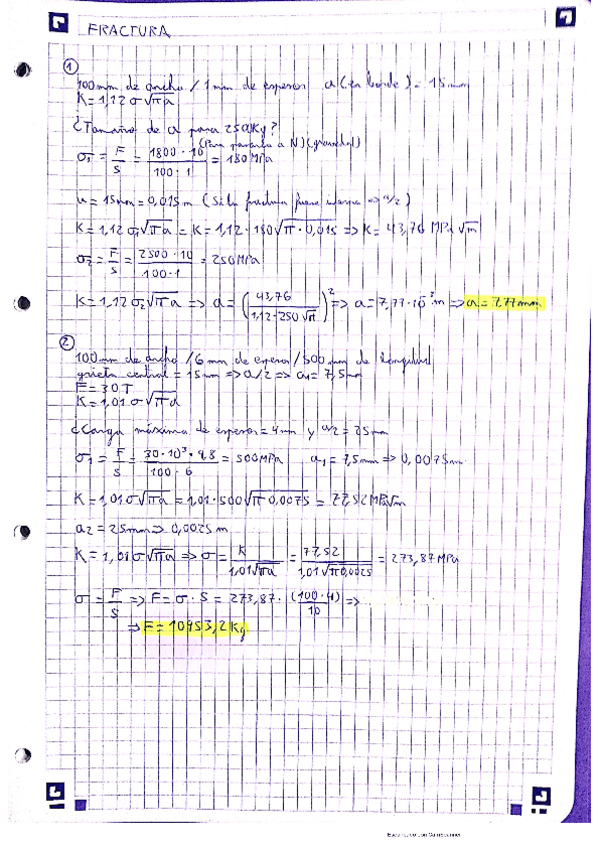 FRACTURA
1
100mm de ancho / 1mm de espesor a (en borde) = 15mm
K = 1,12 σ √πa
¿Tamaño de a para 2500Kg?
(Para pasarla a N) (gravedad)
σ1 = F/S = 1800·10/100·1 = 180 MPa
a = 15mm = 0,015m (Si la fractura fuese interna ⇒ a/2)
K = 1,12 σ1 √πa = K = 1,12·180 √π·0,015 ⇒ K = 43,76 MPa √m
σ2 = F/S = 2500·10/100·1 = 250MPa
K = 1,12 σ2 √πa ⇒ a = (43,76/1,12·250 √π)² ⇒ a = 7,77·10⁻³ m ⇒ a = 7,77mm
2
100mm de ancho / 6mm de espesor / 500mm de longitud
grieta central = 15mm ⇒ a/2 ⇒ a1 = 7,5mm
F = 30T
K = 1,01 σ √πa
¿Carga máxima de espesor = 4mm y a/2 = 25mm
σ1 = F/S = 30·10³·9,8/100·6 = 500MPa a1 = 7,5mm ⇒ 0,0075m
K = 1,01 σ √πa = 1,01·500 √π 0,0075 = 77,52 MPa√m
a2 = 25mm ⇒ 0,0025m
K = 1,01 σ √πa ⇒ σ = K/1,01√πa = 77,52/1,01√π0,0025 = 273,87 MPa
σ = F/S ⇒ F = σ·S = 273,87·(100·4)/10 ⇒
⇒ F = 10953,2 Kg
Escaneado con CamScanner